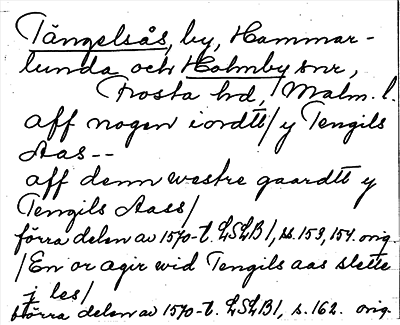 Tängelsås, by, Hammar-
lunda och Holmby snr,
Frosta hd, Malm. l.
aff nogen iordtt/ y Tengils
Aas--
aff denn westre gaardtt y
Tengils Aass/
förra delen av 1570-t. LSLB/, ss. 153, 154. orig.
/En or agir wid Tengils aas slette
j les/
förra delen av 1570-t. LSLB/, s. 162. orig.